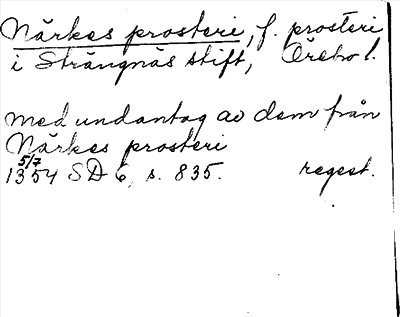 Närkes prosteri, f. prosteri
i Strängnäs stift, Örebro l.
med undantag av dem från
Närkes prosteri
5/7
1354 SD 6, s. 835. regest.